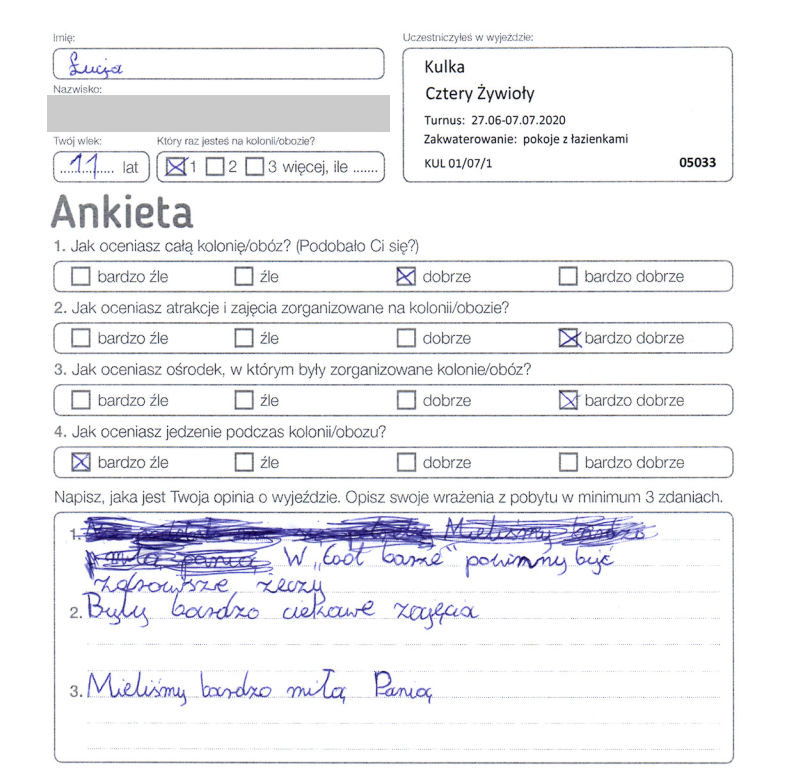 Imię:
Łucja
Nazwisko:
Twój wiek:
11 lat
Który raz jesteś na kolonii/obozie?
1 2 3 więcej, ile .......
Uczestniczyłeś w wyjeździe:
Kulka
Cztery Żywioły
Turnus: 27.06-07.07.2020
Zakwaterowanie: pokoje z łazienkami
KUL 01/07/1 05033
Ankieta
1. Jak oceniasz całą kolonię/obóz? (Podobało Ci się?)
bardzo źle źle dobrze bardzo dobrze
2. Jak oceniasz atrakcje i zajęcia zorganizowane na kolonii/obozie?
bardzo źle źle dobrze bardzo dobrze
3. Jak oceniasz ośrodek, w którym były zorganizowane kolonie/obóz?
bardzo źle źle dobrze bardzo dobrze
4. Jak oceniasz jedzenie podczas kolonii/obozu?
bardzo źle źle dobrze bardzo dobrze
Napisz, jaka jest Twoja opinia o wyjeździe. Opisz swoje wrażenia z pobytu w minimum 3 zdaniach.
1. Mieliśmy bardzo
miłą panią W „Cool barze" powinny być
zdrowsze rzeczy
2. Były bardzo ciekawe zajęcia
3. Mieliśmy bardzo miłą Panią